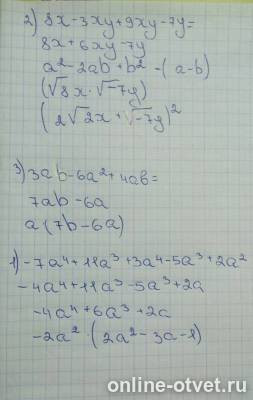 2) 8x-3xy+9xy-7y=
8x+6xy-7y
a²-2ab+b²-(a-b)
(√8x·√-7y)
(2√2x+√-7y)²
3) 3ab-6a²+4ab=
7ab-6a
a(7b-6a)
1) -7a⁴+11a³+3a⁴-5a³+2a²
-4a⁴+11a³-5a³+2a
-4a⁴+6a³+2a
-2a²·(2a²-3a-1)
online-otvet.ru